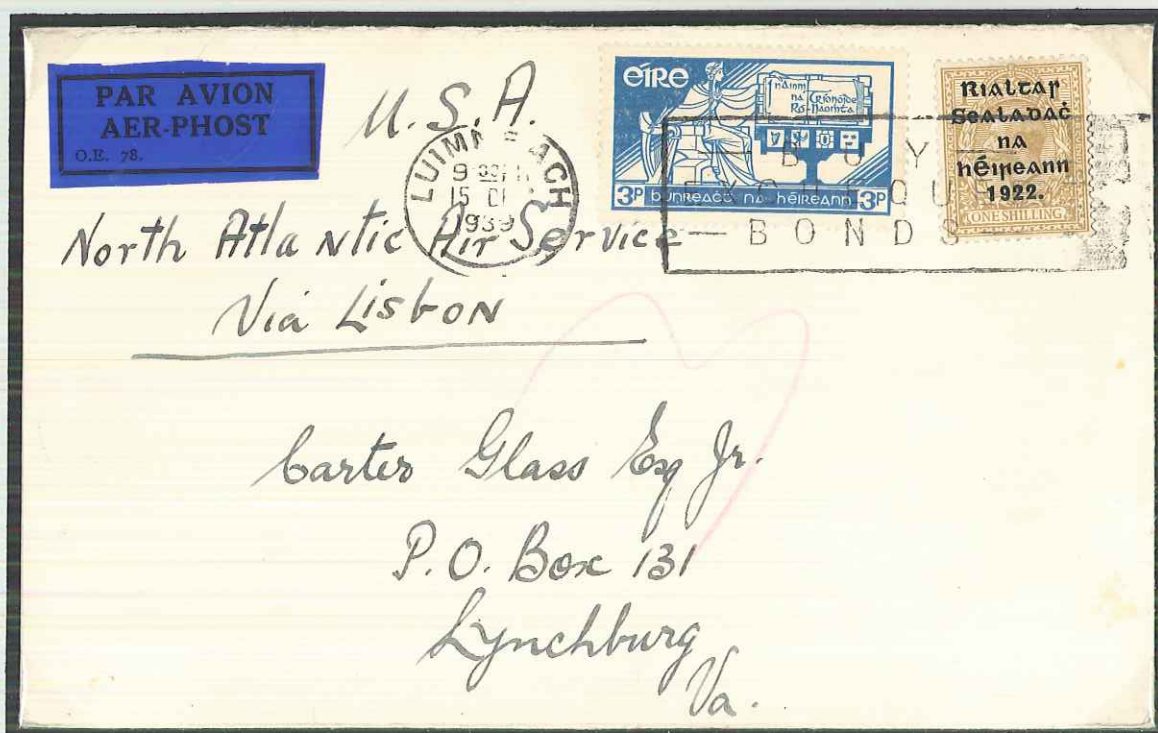 PAR AVION
AER-PHOST
O.E. 78.
U.S.A.
LUIMNEACH
1939
éIRE
3P bunreacht na héireann 3P
Rialtar
Sealadaċ
na
hÉireann
1922.
ONE SHILLING
BUY
BONDS
North Atlantic Air Service
Via Lisbon
Carter Glass Esq Jr.
P.O. Box 131
Lynchburg
Va.